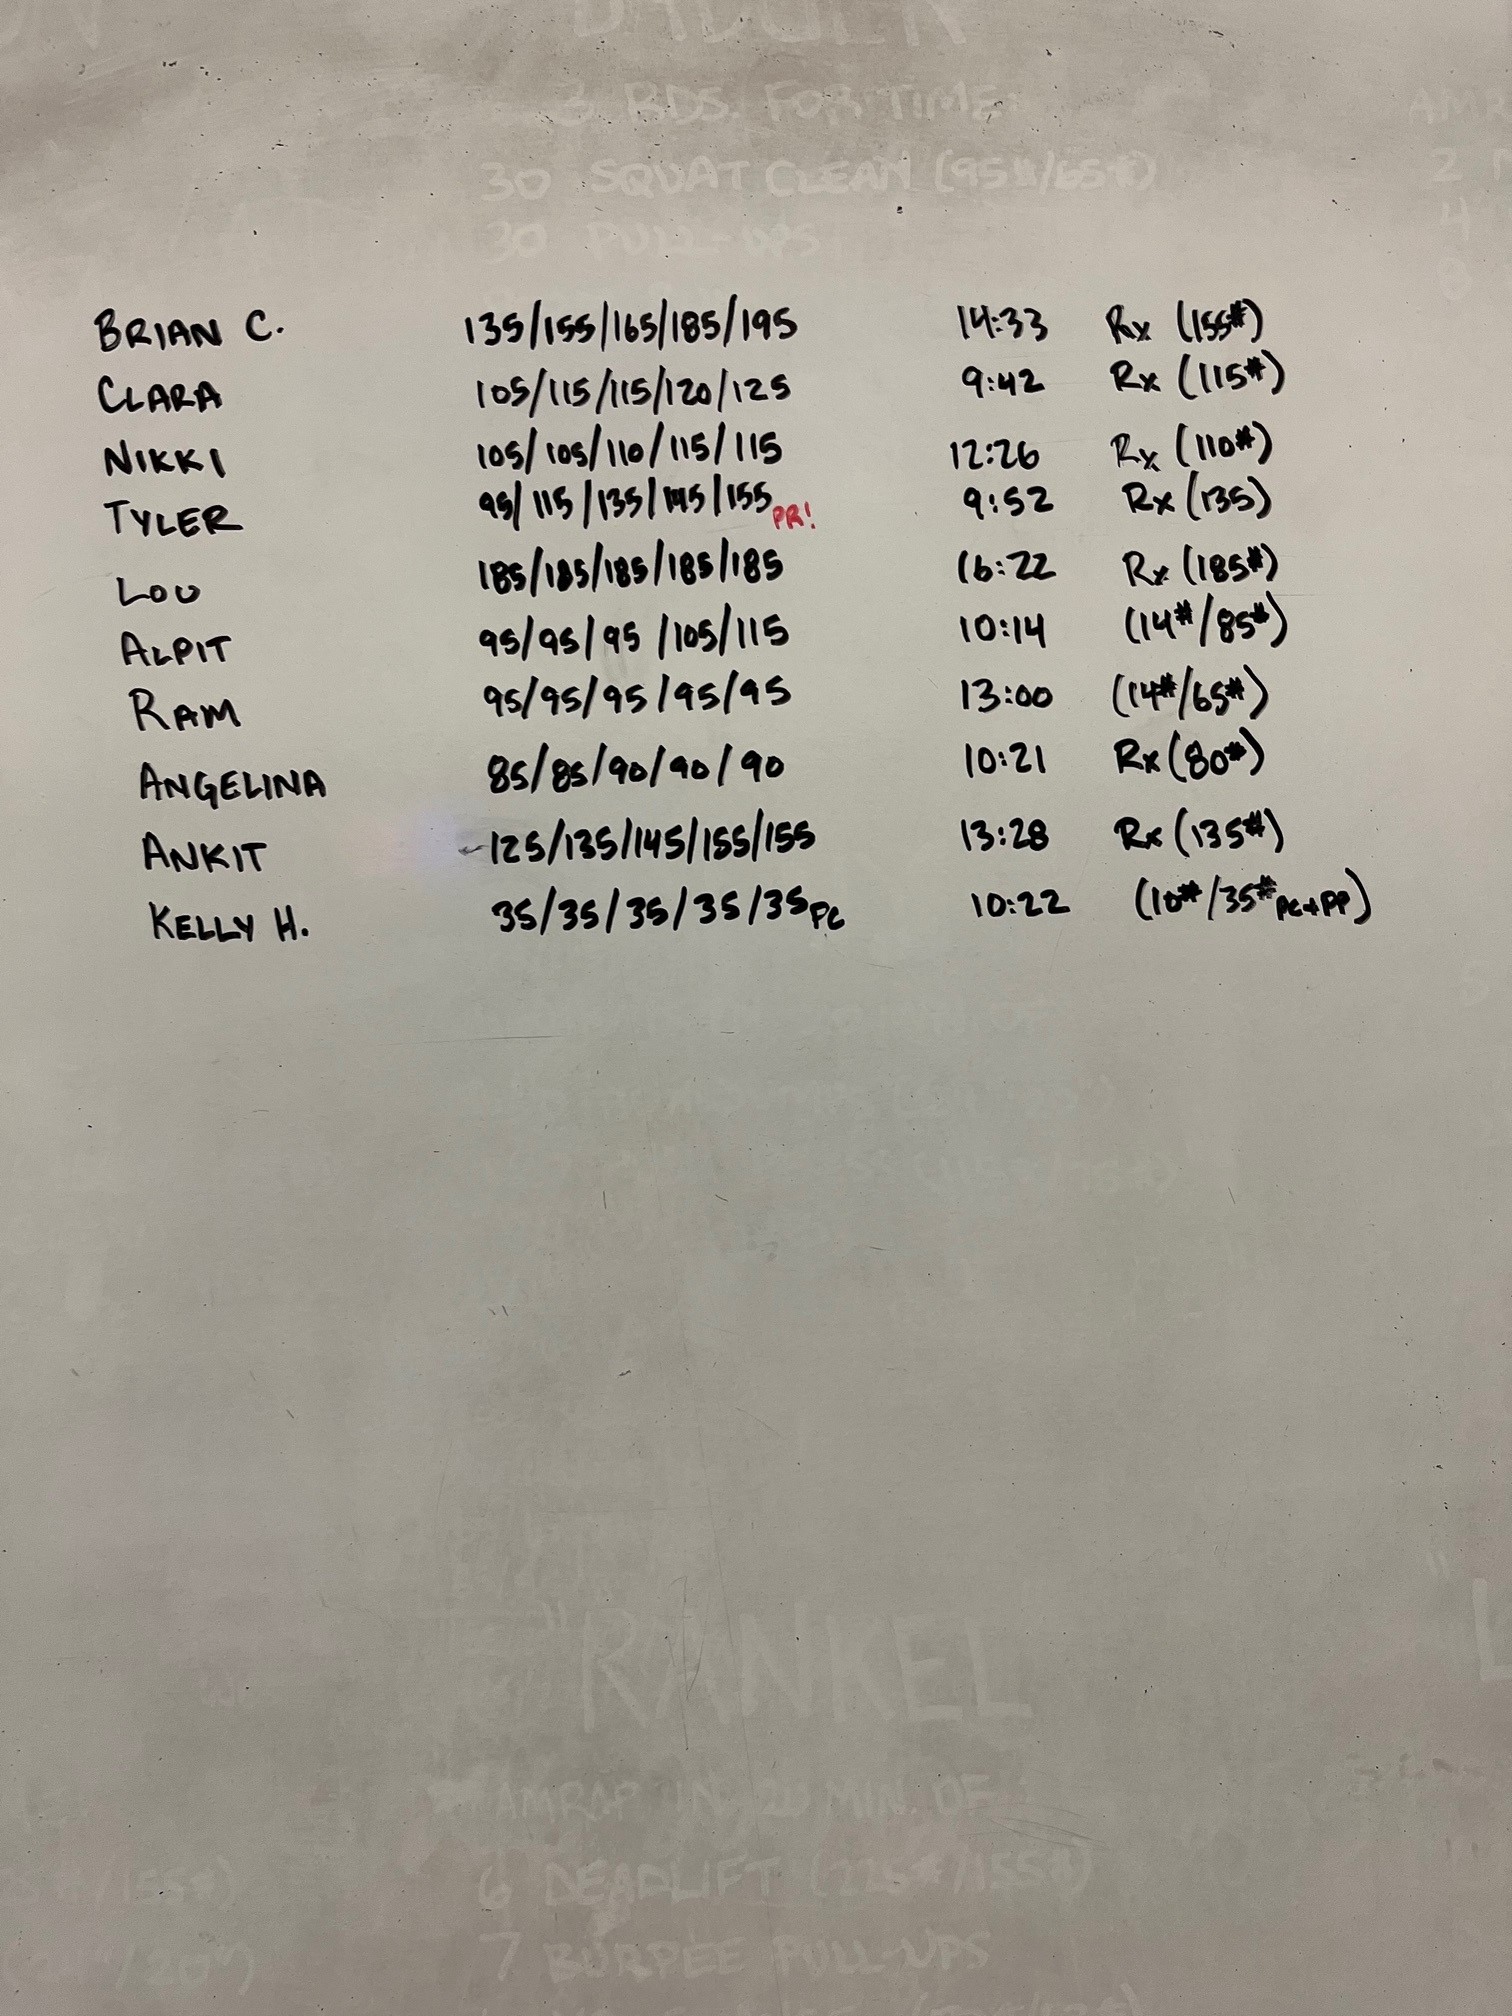 BADGER
3 RDS. FOR TIME:
30 SQUAT CLEAN (95#/65#)
30 PULL-UPS
BRIAN C. 135/155/165/185/195 14:33 Rx (155#)
CLARA 105/115/115/120/125 9:42 Rx (115#)
NIKKI 105/105/110/115/115 12:26 Rx (110#)
TYLER 95/115/135/145/155 PR! 9:52 Rx (135)
LOU 185/185/185/185/185 16:22 Rx (185#)
ALPIT 95/95/95/105/115 10:14 (14#/85#)
RAM 95/95/95/95/95 13:00 (14#/65#)
ANGELINA 85/85/90/90/90 10:21 Rx (80#)
ANKIT 125/135/145/155/155 13:28 Rx (135#)
KELLY H. 35/35/35/35/35 PC 10:22 (10#/35# PC+PP)
"RANKEL
AMRAP IN 20 MIN. OF:
6 DEADLIFT (225#/155#)
7 BURPEE PULL-UPS